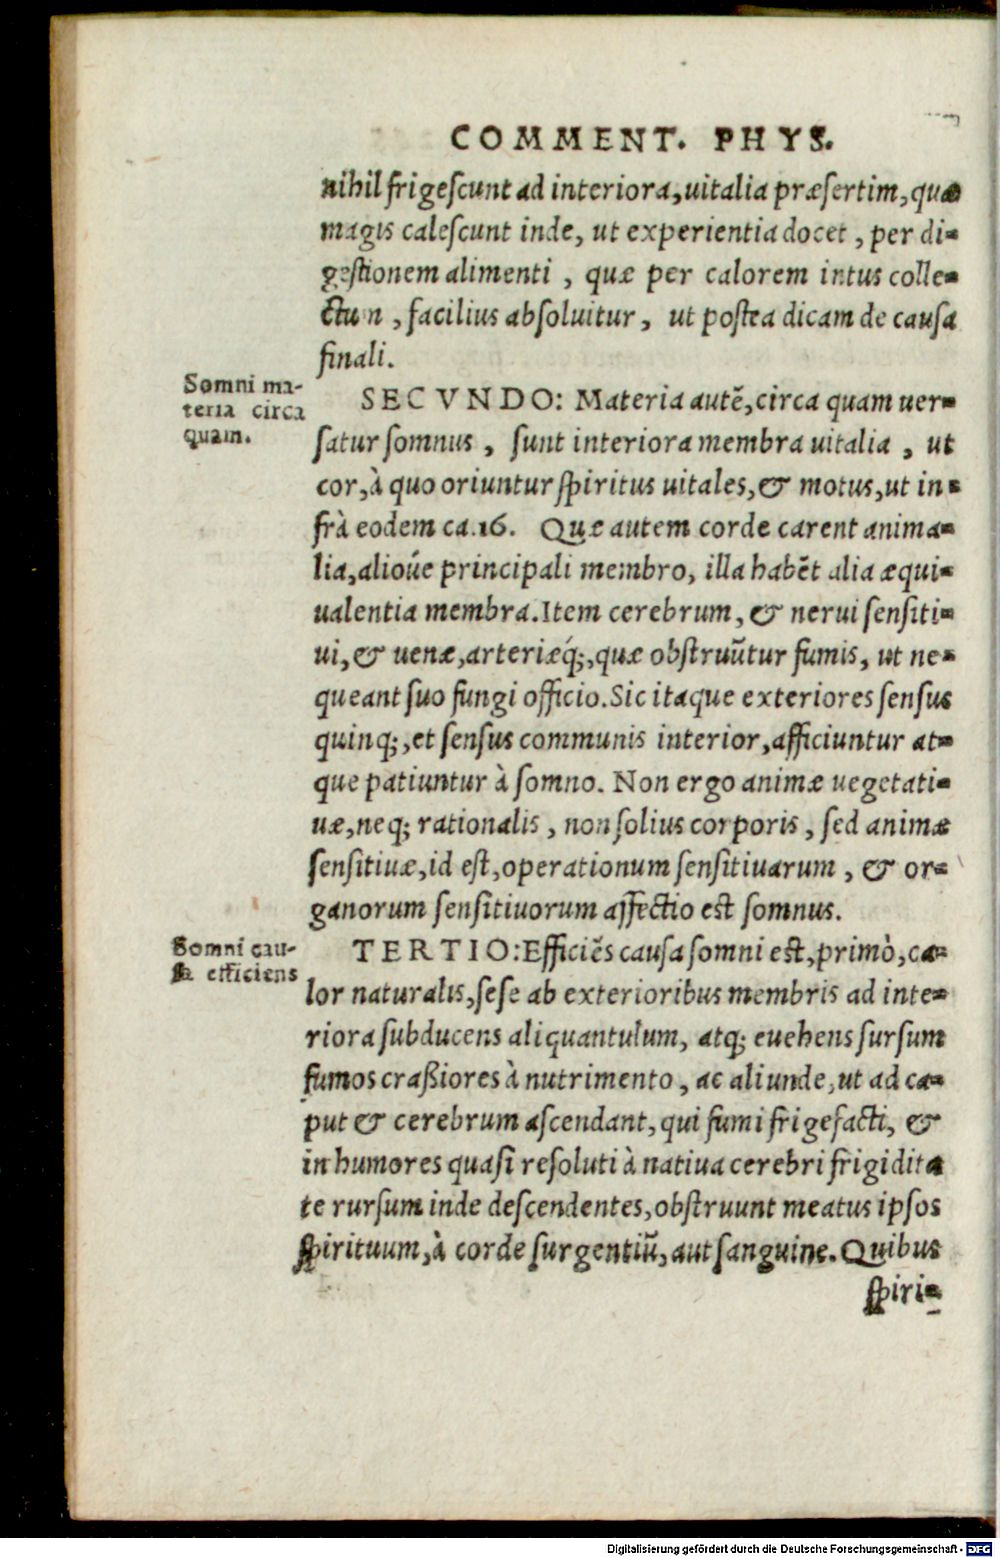 COMMENT. PHYS.
nihil frigescunt ad interiora, uitalia præsertim, quæ
magis calescunt inde, ut experientia docet, per di-
gestionem alimenti, quæ per calorem intus colle-
ctum, facilius absoluitur, ut postea dicam de causa
finali.
Somni ma-
teria circa
quam.
SECVNDO: Materia autē, circa quam uer-
satur somnus, sunt interiora membra uitalia, ut
cor, à quo oriuntur spiritus uitales, & motus, ut in-
frà eodem ca.16. Quæ autem corde carent anima-
lia, alioúe principali membro, illa habēt alia æqui-
ualentia membra. Item cerebrum, & nerui sensiti-
ui, & uenæ, arteriæq́;, quæ obstruūtur fumis, ut ne-
queant suo fungi officio. Sic itaque exteriores sensus
quinq;, et sensus communis interior, afficiuntur at-
que patiuntur à somno. Non ergo animæ uegetati-
uæ, neq; rationalis, non solius corporis, sed animæ
sensitiuæ, id est, operationum sensitiuarum, & or-
ganorum sensitiuorum affectio est somnus.
Somni cau-
sa efficiens
TERTIO: Efficiēs causa somni est, primò, ca-
lor naturalis, sese ab exterioribus membris ad inte-
riora subducens aliquantulum, atq; euehens sursum
fumos craßiores à nutrimento, ac aliunde, ut ad ca-
put & cerebrum ascendant, qui fumi frigefacti, &
in humores quasi resoluti à natiua cerebri frigidita
te rursum inde descendentes, obstruunt meatus ipsos
spirituum, à corde surgentiū, aut sanguine. Quibus
spiri-
Digitalisierung gefördert durch die Deutsche Forschungsgemeinschaft - DFG